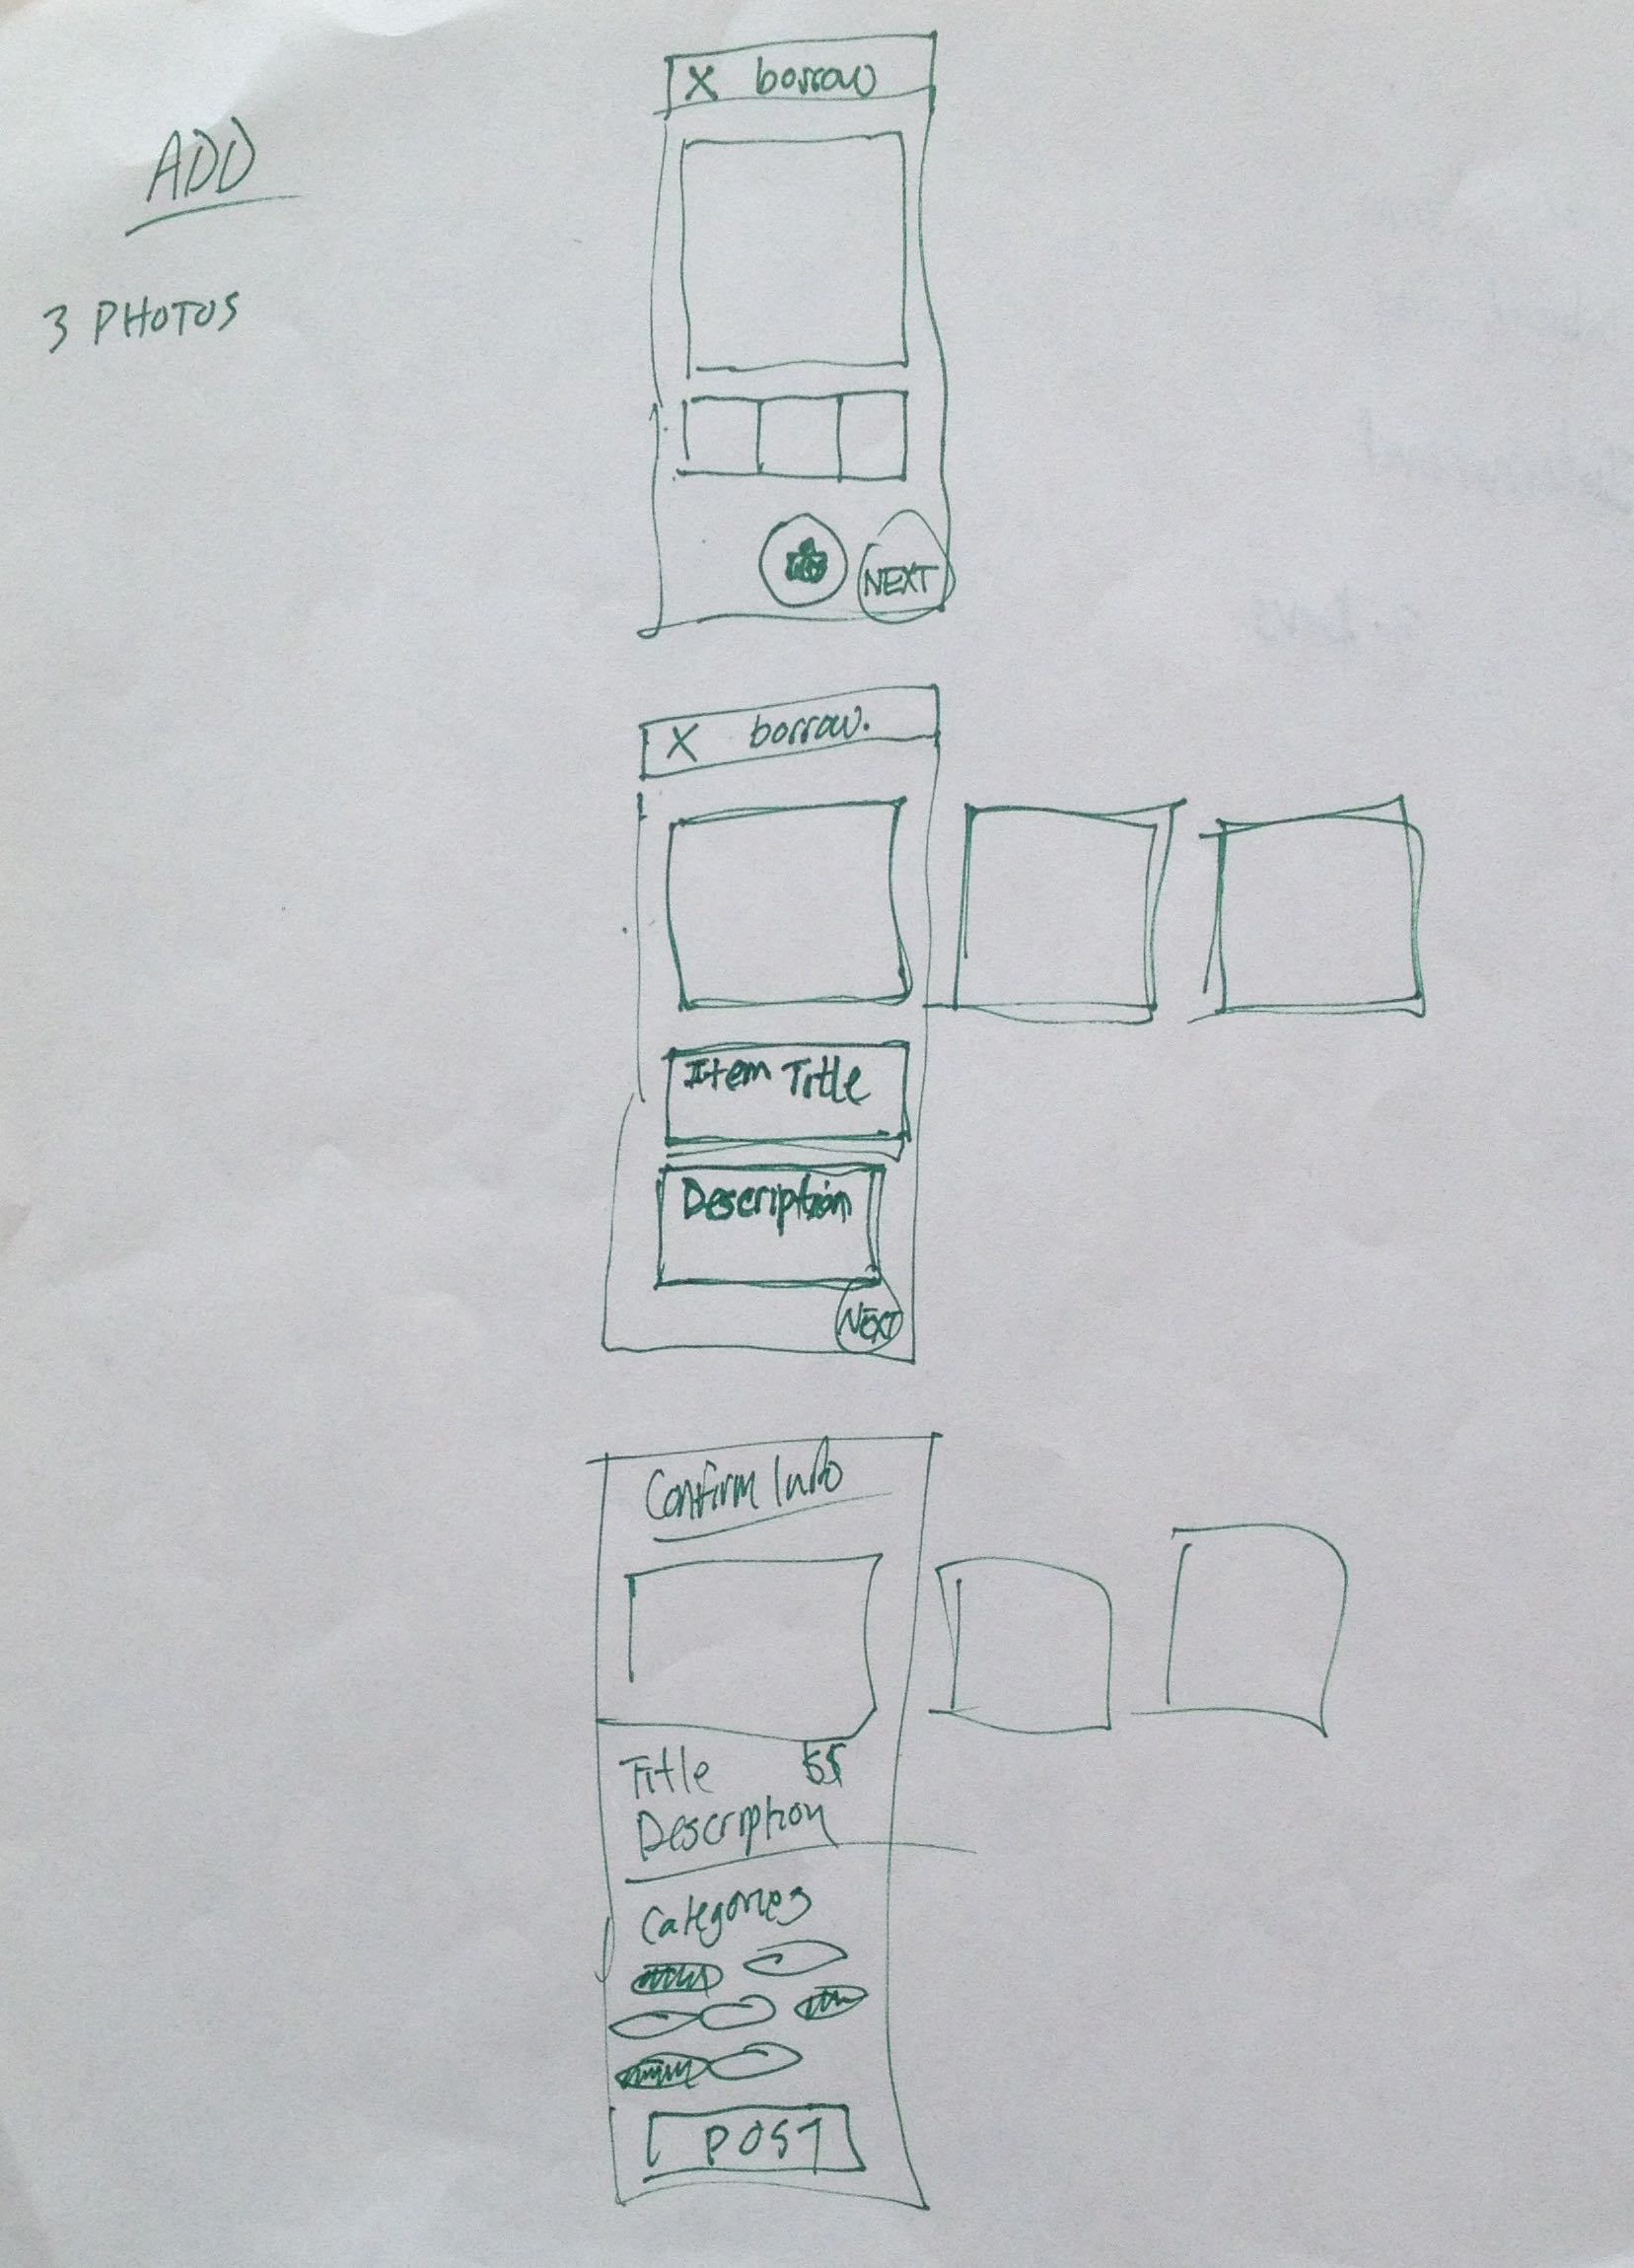 ADD
3 PHOTOS
X borrow
NEXT
X borrow.
Item Title
Description
NEXT
Confirm Info
Title
Description
Categories
POST